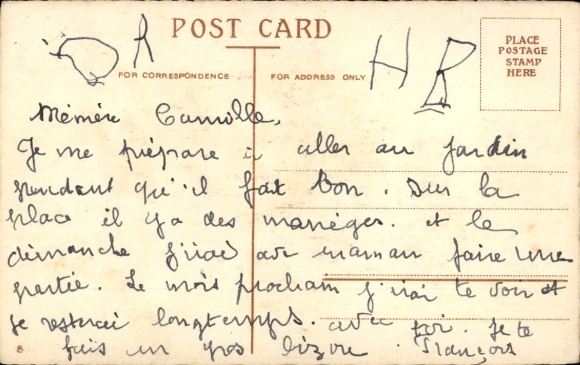 POST CARD
FOR CORRESPONDENCE
FOR ADDRESS ONLY
PLACE
POSTAGE
STAMP
HERE
R H R
Mémère Camille,
Je me prépare à aller au jardin
pendant qu'il fait bon. Sur la
place il y a des manèges. et le
dimanche j'irai avec maman faire une
partie. Le mois prochain j'irai te voir et
je resterai longtemps. avec toi. Je te
fais un gros bizou. François
8